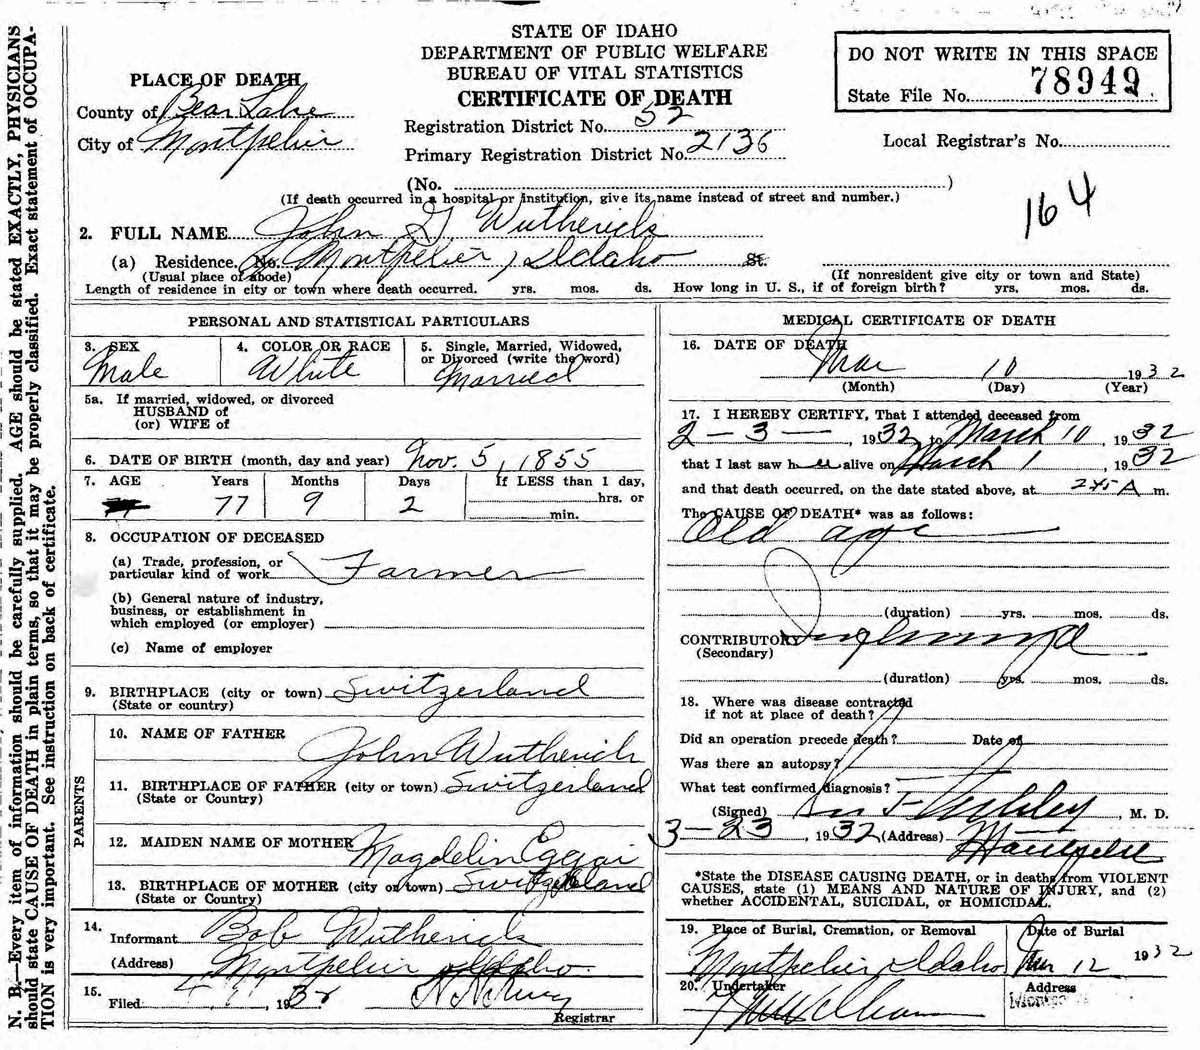 N. B.—Every item of information should be carefully supplied. AGE should be stated EXACTLY, PHYSICIANS
should state CAUSE OF DEATH in plain terms, so that it may be properly classified. Exact statement of OCCUPA-
TION is very important. See instruction on back of certificate.
STATE OF IDAHO
DEPARTMENT OF PUBLIC WELFARE
BUREAU OF VITAL STATISTICS
CERTIFICATE OF DEATH
DO NOT WRITE IN THIS SPACE
State File No. 78949
PLACE OF DEATH
County of Bear Lake
City of Montpelier
Registration District No. 52
Primary Registration District No. 2136
Local Registrar's No.
(No. )
(If death occurred in a hospital or institution, give its name instead of street and number.)
164
2. FULL NAME John G Wutherich
(a) Residence. No. Montpelier, Idaho St.
(Usual place of abode)
(If nonresident give city or town and State)
Length of residence in city or town where death occurred. yrs. mos. ds. How long in U. S., if of foreign birth? yrs. mos. ds.
PERSONAL AND STATISTICAL PARTICULARS
3. SEX
Male
4. COLOR OR RACE
White
5. Single, Married, Widowed,
or Divorced (write the word)
Married
5a. If married, widowed, or divorced
HUSBAND of
(or) WIFE of
6. DATE OF BIRTH (month, day and year) Nov. 5, 1855
7. AGE Years Months Days If LESS than 1 day,
77 9 2 hrs. or
min.
8. OCCUPATION OF DECEASED
(a) Trade, profession, or
particular kind of work Farmer
(b) General nature of industry,
business, or establishment in
which employed (or employer)
(c) Name of employer
9. BIRTHPLACE (city or town) Switzerland
(State or country)
PARENTS
10. NAME OF FATHER
John Wutherich
11. BIRTHPLACE OF FATHER (city or town) Switzerland
(State or Country)
12. MAIDEN NAME OF MOTHER
Magdelin Eggai
13. BIRTHPLACE OF MOTHER (city or town) Switzerland
(State or Country)
14.
Informant Bob Wutherich
(Address) Montpelier Idaho.
15.
Filed 1932
Registrar
MEDICAL CERTIFICATE OF DEATH
16. DATE OF DEATH
Mar 10 1932
(Month) (Day) (Year)
17. I HEREBY CERTIFY, That I attended deceased from
2-3-, 1932 to March 10, 1932
that I last saw h alive on March 1, 1932
and that death occurred, on the date stated above, at A m.
The CAUSE OF DEATH* was as follows:
Old age
(duration) yrs. mos. ds.
CONTRIBUTORY
(Secondary)
(duration) yrs. mos. ds.
18. Where was disease contracted
if not at place of death?
Did an operation precede death? Date of
Was there an autopsy?
What test confirmed diagnosis?
(Signed) , M. D.
3-23, 1932 (Address) Montpelier
*State the DISEASE CAUSING DEATH, or in deaths from VIOLENT
CAUSES, state (1) MEANS AND NATURE OF INJURY, and (2)
whether ACCIDENTAL, SUICIDAL, or HOMICIDAL.
19. Place of Burial, Cremation, or Removal Date of Burial
Montpelier, Idaho Mar 12 1932
20. Undertaker Address